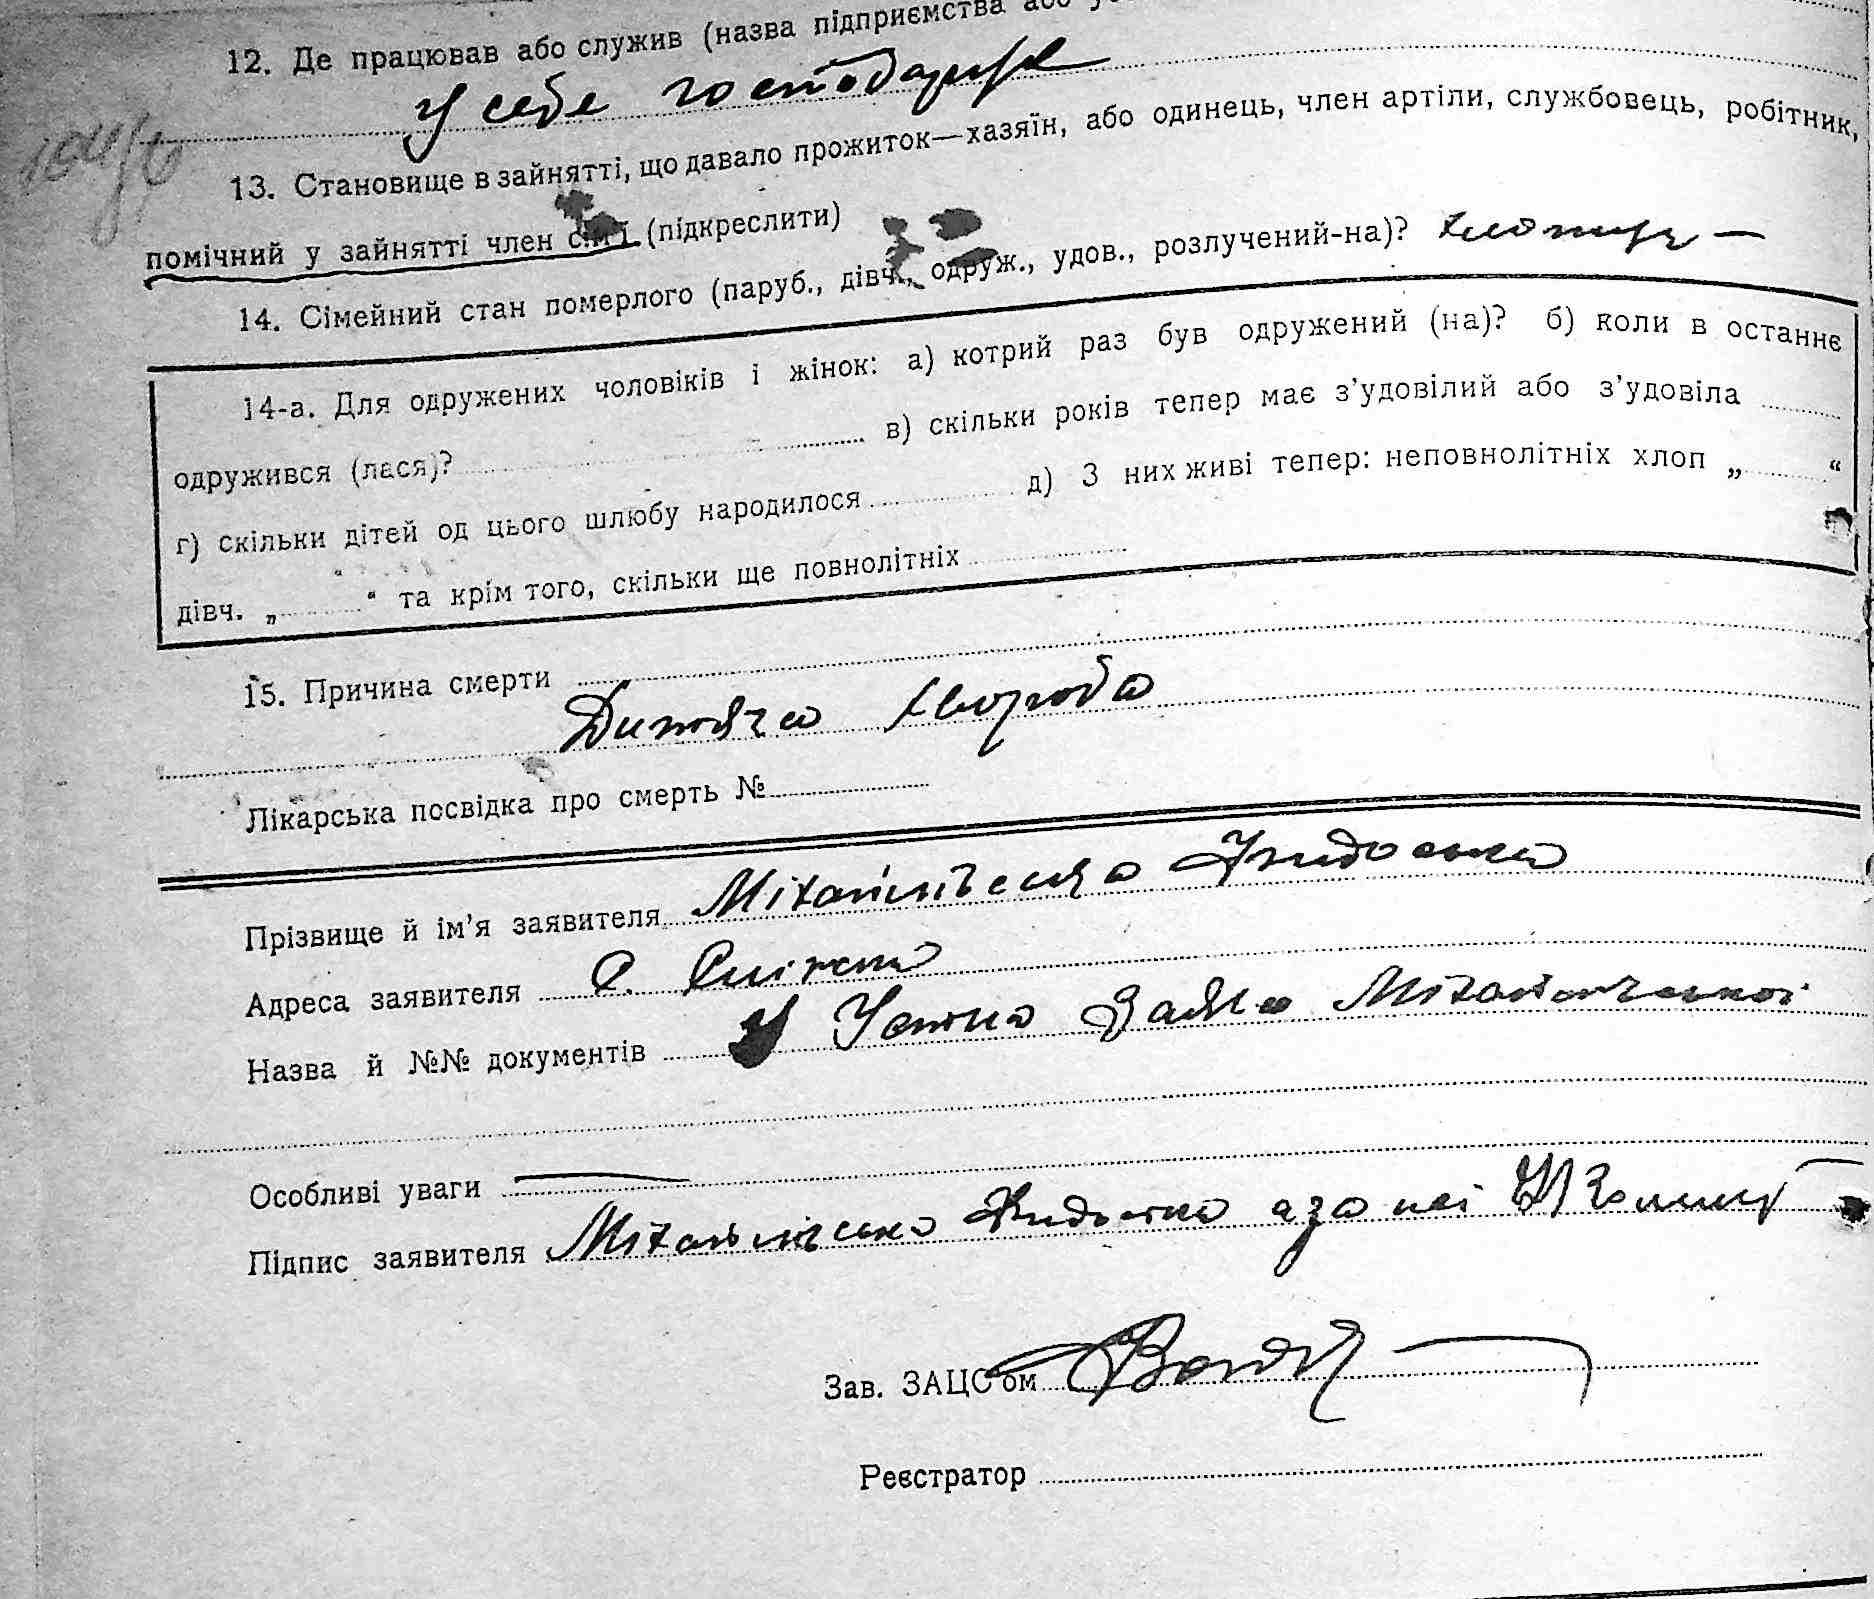 12. Де працював або служив (назва підприємства або
у себе господарстві
13. Становище в зайнятті, що давало прожиток—хазяїн, або одинець, член артіли, службовець, робітник,
помічний у зайнятті член сім'ї (підкреслити)
14. Сімейний стан померлого (паруб., дівч., одруж., удов., розлучений-на)? хлопець —
14-а. Для одружених чоловіків і жінок: а) котрий раз був одружений (на)? б) коли в останнє
одружився (лася)? в) скільки років тепер має з’удовілий або з’удовіла
г) скільки дітей од цього шлюбу народилося д) З них живі тепер: неповнолітніх хлоп „ “
дівч. „ “ та крім того, скільки ще повнолітніх
15. Причина смерти
Дитяча хвороба
Лікарська посвідка про смерть №
Прізвище й ім’я заявителя Міхайлівська
Адреса заявителя С.
Назва й №№ документів Устна Заява Міхайлівської
Особливі уваги
Підпис заявителя Міхайлівська а за неї
Зав. ЗАЦС'ом
Реєстратор